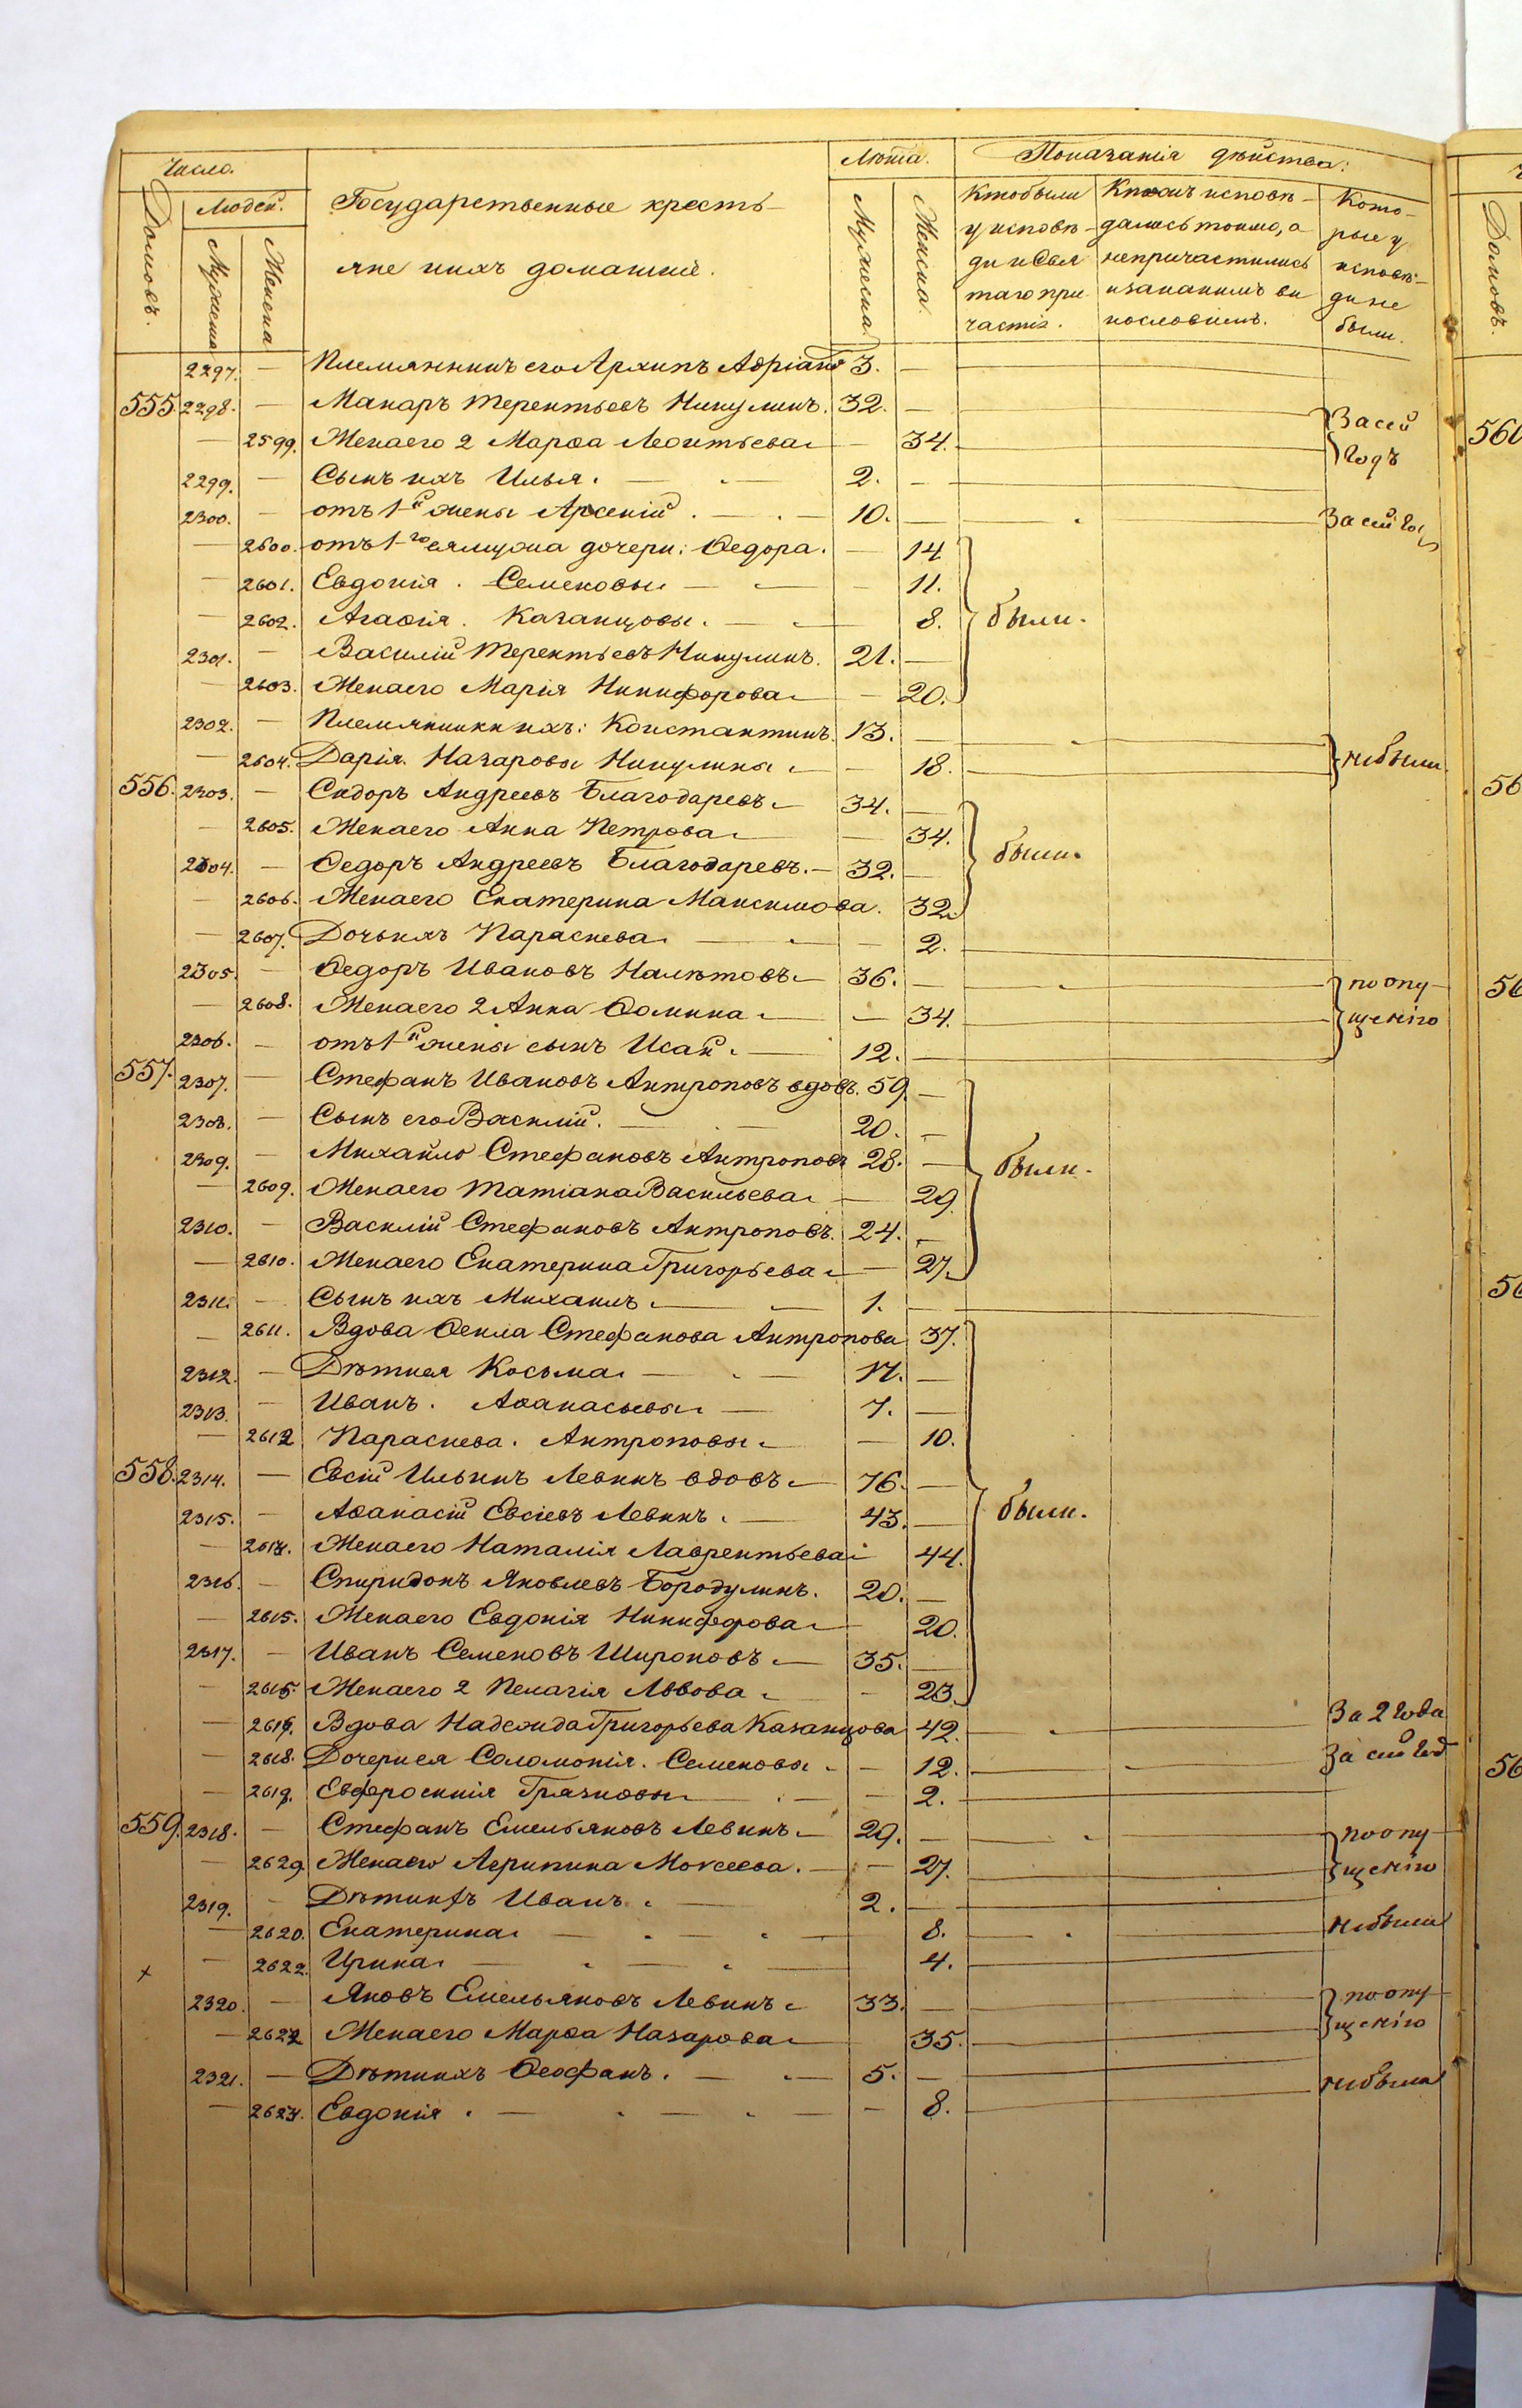 Число.
Лѣта.
Показанія дѣйства:
Домовъ.
Людей.
Мужеска
Женска
Государственные кресть-
яне ихъ домашніе.
Мужеска.
Женска.
Кто были
у исповѣ-
ди и Свя
таго при
частія.
Кто исповѣ-
дались токмо, а
непричастились
и за какимъ ви
нословіемъ.
Кото-
рые у
исповѣ-
ди не
были.
2297. — Племянникъ его Архипъ Адріановъ 3. —
555. 2298. — Макаръ Терентьевъ Никулинъ. 32. — За сей
— 2599. Жена его 2 Марѳа Леонтьева — 34. годъ
2299. — Сынъ ихъ Илья. 2. —
2300. — отъ 1й жены Арсеній. 10. — За сей го
— 2600. отъ 1го ея мужа дочери: Ѳедора. — 14
— 2601. Евдокія. Семеновы — 11.
— 2602. Агаѳія. Казанцовы. — 8. были.
2301. — Василій Терентьевъ Никулинъ. 21. —
— 2603. Жена его Марія Никифорова — 20.
2302. — Племянники ихъ: Константинъ. 13. —
— 2604. Дарія. Назаровы Никулины — 18. небыли.
556. 2303. — Сидоръ Андреевъ Благодаревъ 34. —
— 2605. Жена его Анна Петрова — 34.
2304. — Ѳедоръ Андреевъ Благодаревъ. 32. — были.
— 2606. Жена его Екатерина Максимова. 32.
— 2607. Дочь ихъ Параскева — 2.
2305. — Ѳедоръ Ивановъ Налѣтовъ 36. — по опу-
— 2608. Жена его 2 Анна Ѳомина — 34. щенію
2306. — отъ 1й жены сынъ Исай. 12. —
557. 2307. — Стефанъ Ивановъ Антроповъ вдовъ. 59. —
2308. — Сынъ его Василій. 20. —
2309. — Михайло Стефановъ Антроповъ 28. — были.
— 2609. Жена его Татіана Васильева — 29
2310. — Василій Стефановъ Антроповъ. 24. —
— 2610. Жена его Екатерина Григорьева — 27.
2311. — Сынъ ихъ Михаилъ 1. —
— 2611. Вдова Ѳекла Стефанова Антропова 37.
2312. — Дѣти ея Косьма 17. —
2313. — Иванъ. Аѳанасьевы 7. —
— 2612 Параскева. Антроповы — 10.
558. 2314. — Евсій Ильинъ Левинъ вдовъ 76. —
2315. — Аѳанасій Евсіевъ Левинъ. 43. — были.
— 2613. Жена его Наталія Лаврентьева 44.
2316. — Спиридонъ Яковлевъ Бородулинъ. 20. —
— 2615. Жена его Евдокія Никифорова 20.
2317. — Иванъ Семеновъ Широковъ 35. —
— 2616. Жена его 2 Пелагія Львова — 23.
— 2617. Вдова Надежда Григорьева Казанцова 42. За 2 года
— 2618. Дочери ея Соломонія. Семеновы — 12. За сей год
— 2619. Евфросинія Грязновы — 2.
559. 2318. — Стефанъ Емельяновъ Левинъ 29. — по опу-
— 2620 Жена его Агрипина Моѵсеева. — 27. щенію
2319. — Дѣти ихъ Иванъ. 2. —
— 2620. Екатерина 8. небыла
— 2622. Ирина 4.
2320. — Яковъ Емельяновъ Левинъ 33. — по опу-
— 2622 Жена его Марѳа Назарова 35. щенію
2321. — Дѣти ихъ Ѳеофанъ. 5. —
— 2624. Евдокія. — 8. небыла